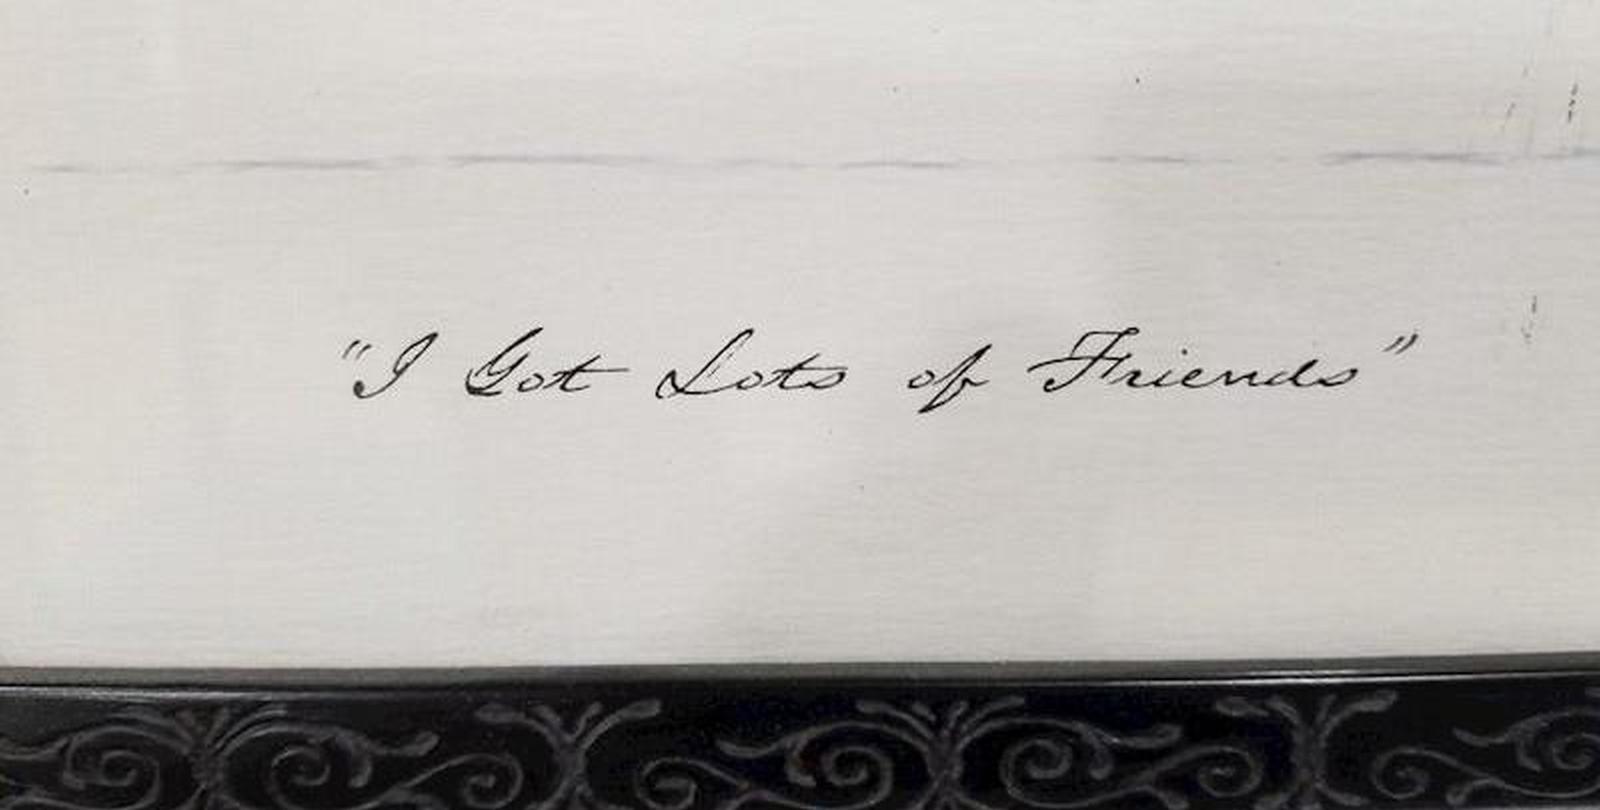 "I Got Lots of Friends"